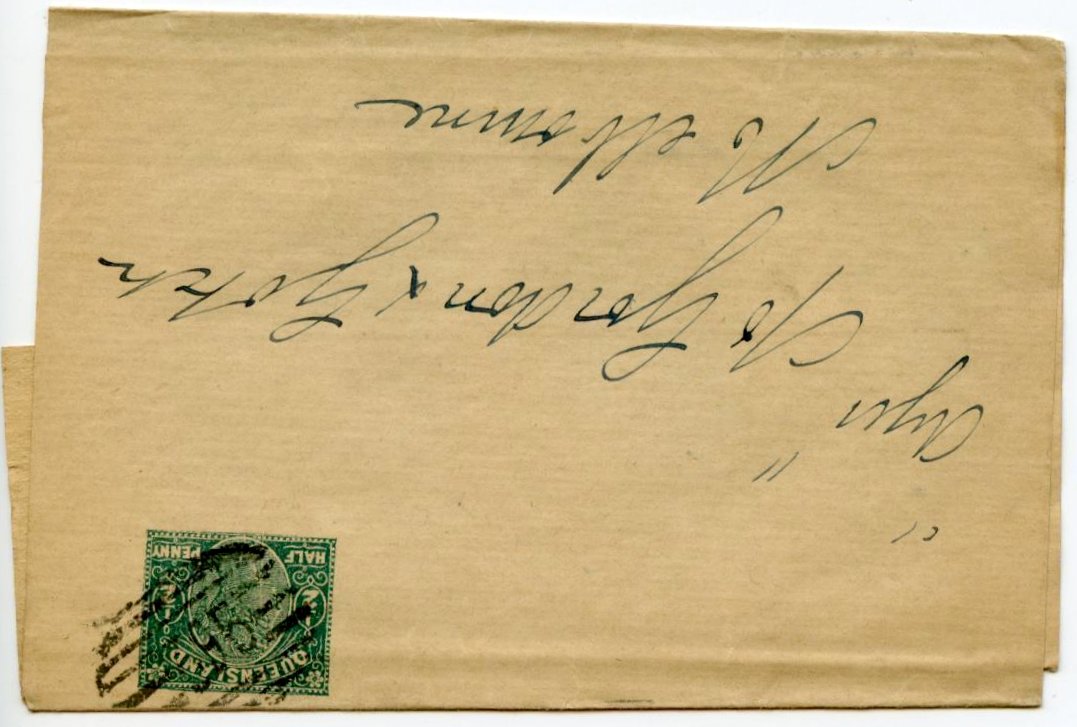 "Age"
c/o Gordon & Gotch
Melbourne
QUEENSLAND
½ ½
HALF PENNY